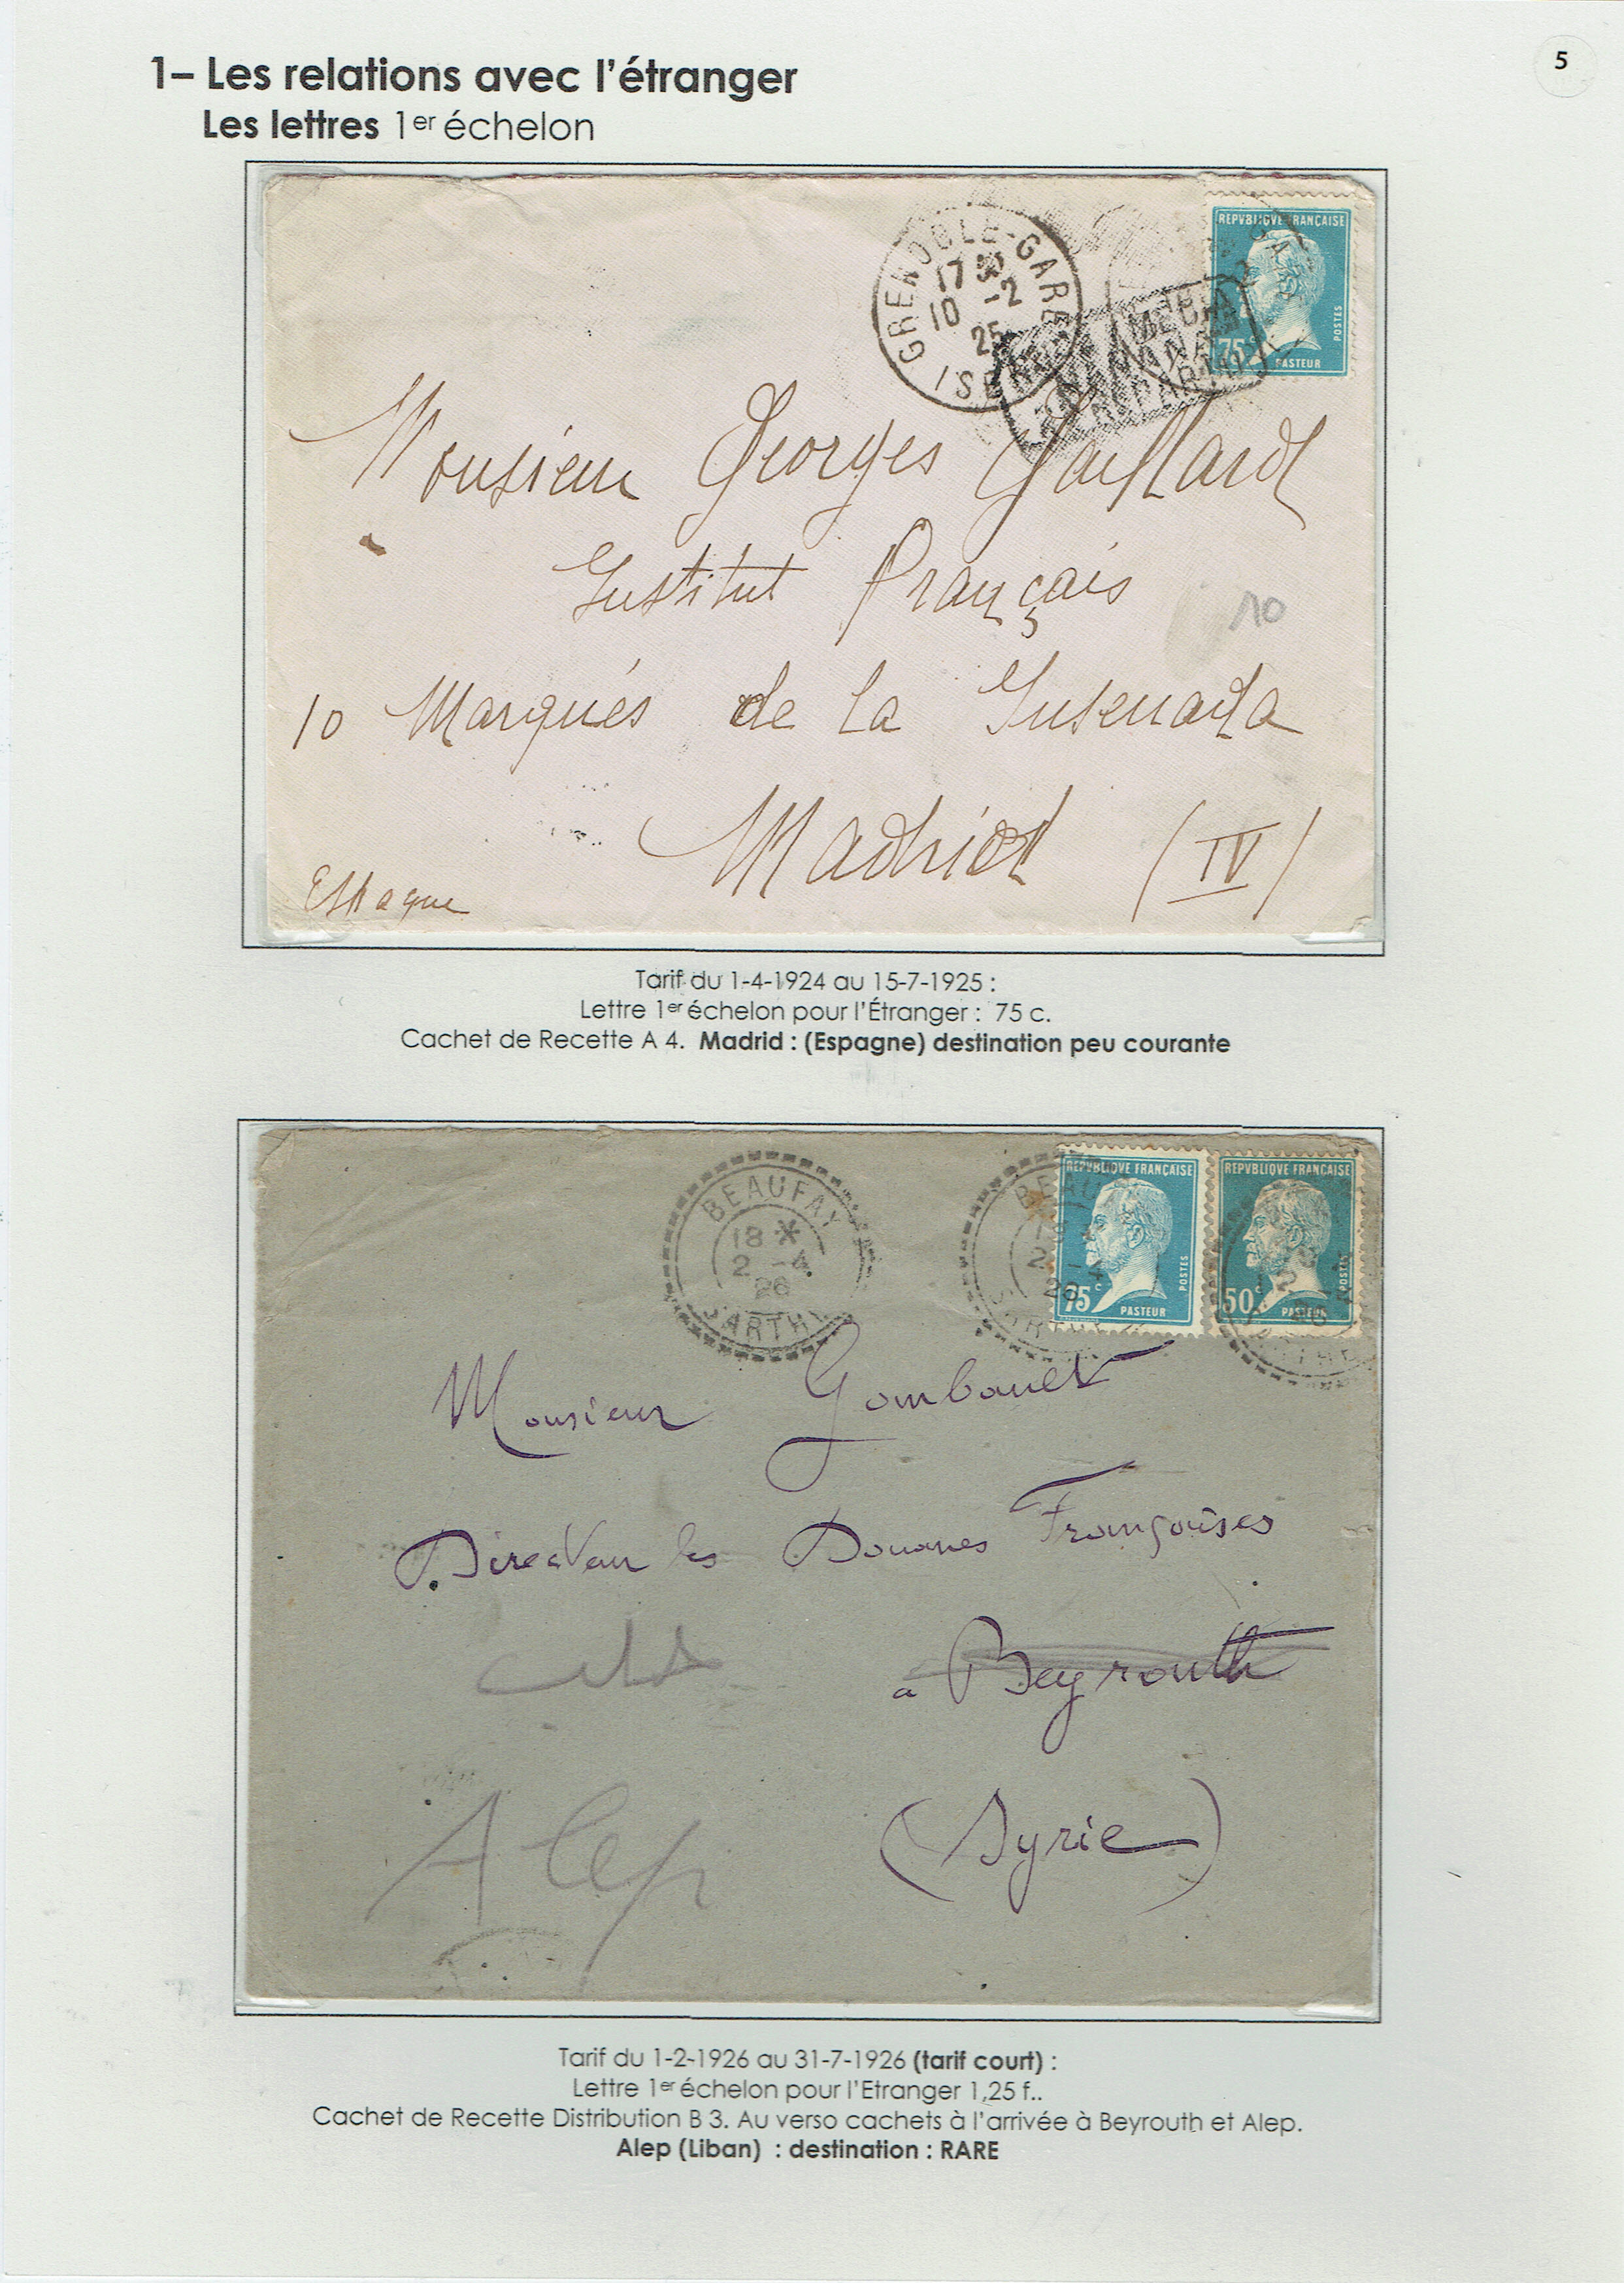 5
1– Les relations avec l'étranger
Les lettres 1er échelon
GRENOBLE-GARE
17 30
10 -2
25
ISERE
REPVBLIQVE FRANÇAISE
POSTES
75c
PASTEUR
Monsieur Georges Gaillard
Institut Français
10
10 Marqués de la Insenada
Madrid (IV)
Espagne
Tarif du 1-4-1924 au 15-7-1925 :
Lettre 1er échelon pour l'Étranger : 75 c.
Cachet de Recette A 4. Madrid : (Espagne) destination peu courante
BEAUFAY
18 *
2 -4
26
SARTHE
REPVBLIQVE FRANÇAISE
POSTES
75c
PASTEUR
REPVBLIQVE FRANÇAISE
POSTES
50c
PASTEUR
Monsieur Gombault
Directeur les Douanes Françaises
à Beyrouth
حلب
Alep
(Syrie)
Tarif du 1-2-1926 au 31-7-1926 (tarif court) :
Lettre 1er échelon pour l'Etranger 1,25 f..
Cachet de Recette Distribution B 3. Au verso cachets à l'arrivée à Beyrouth et Alep.
Alep (Liban) : destination : RARE